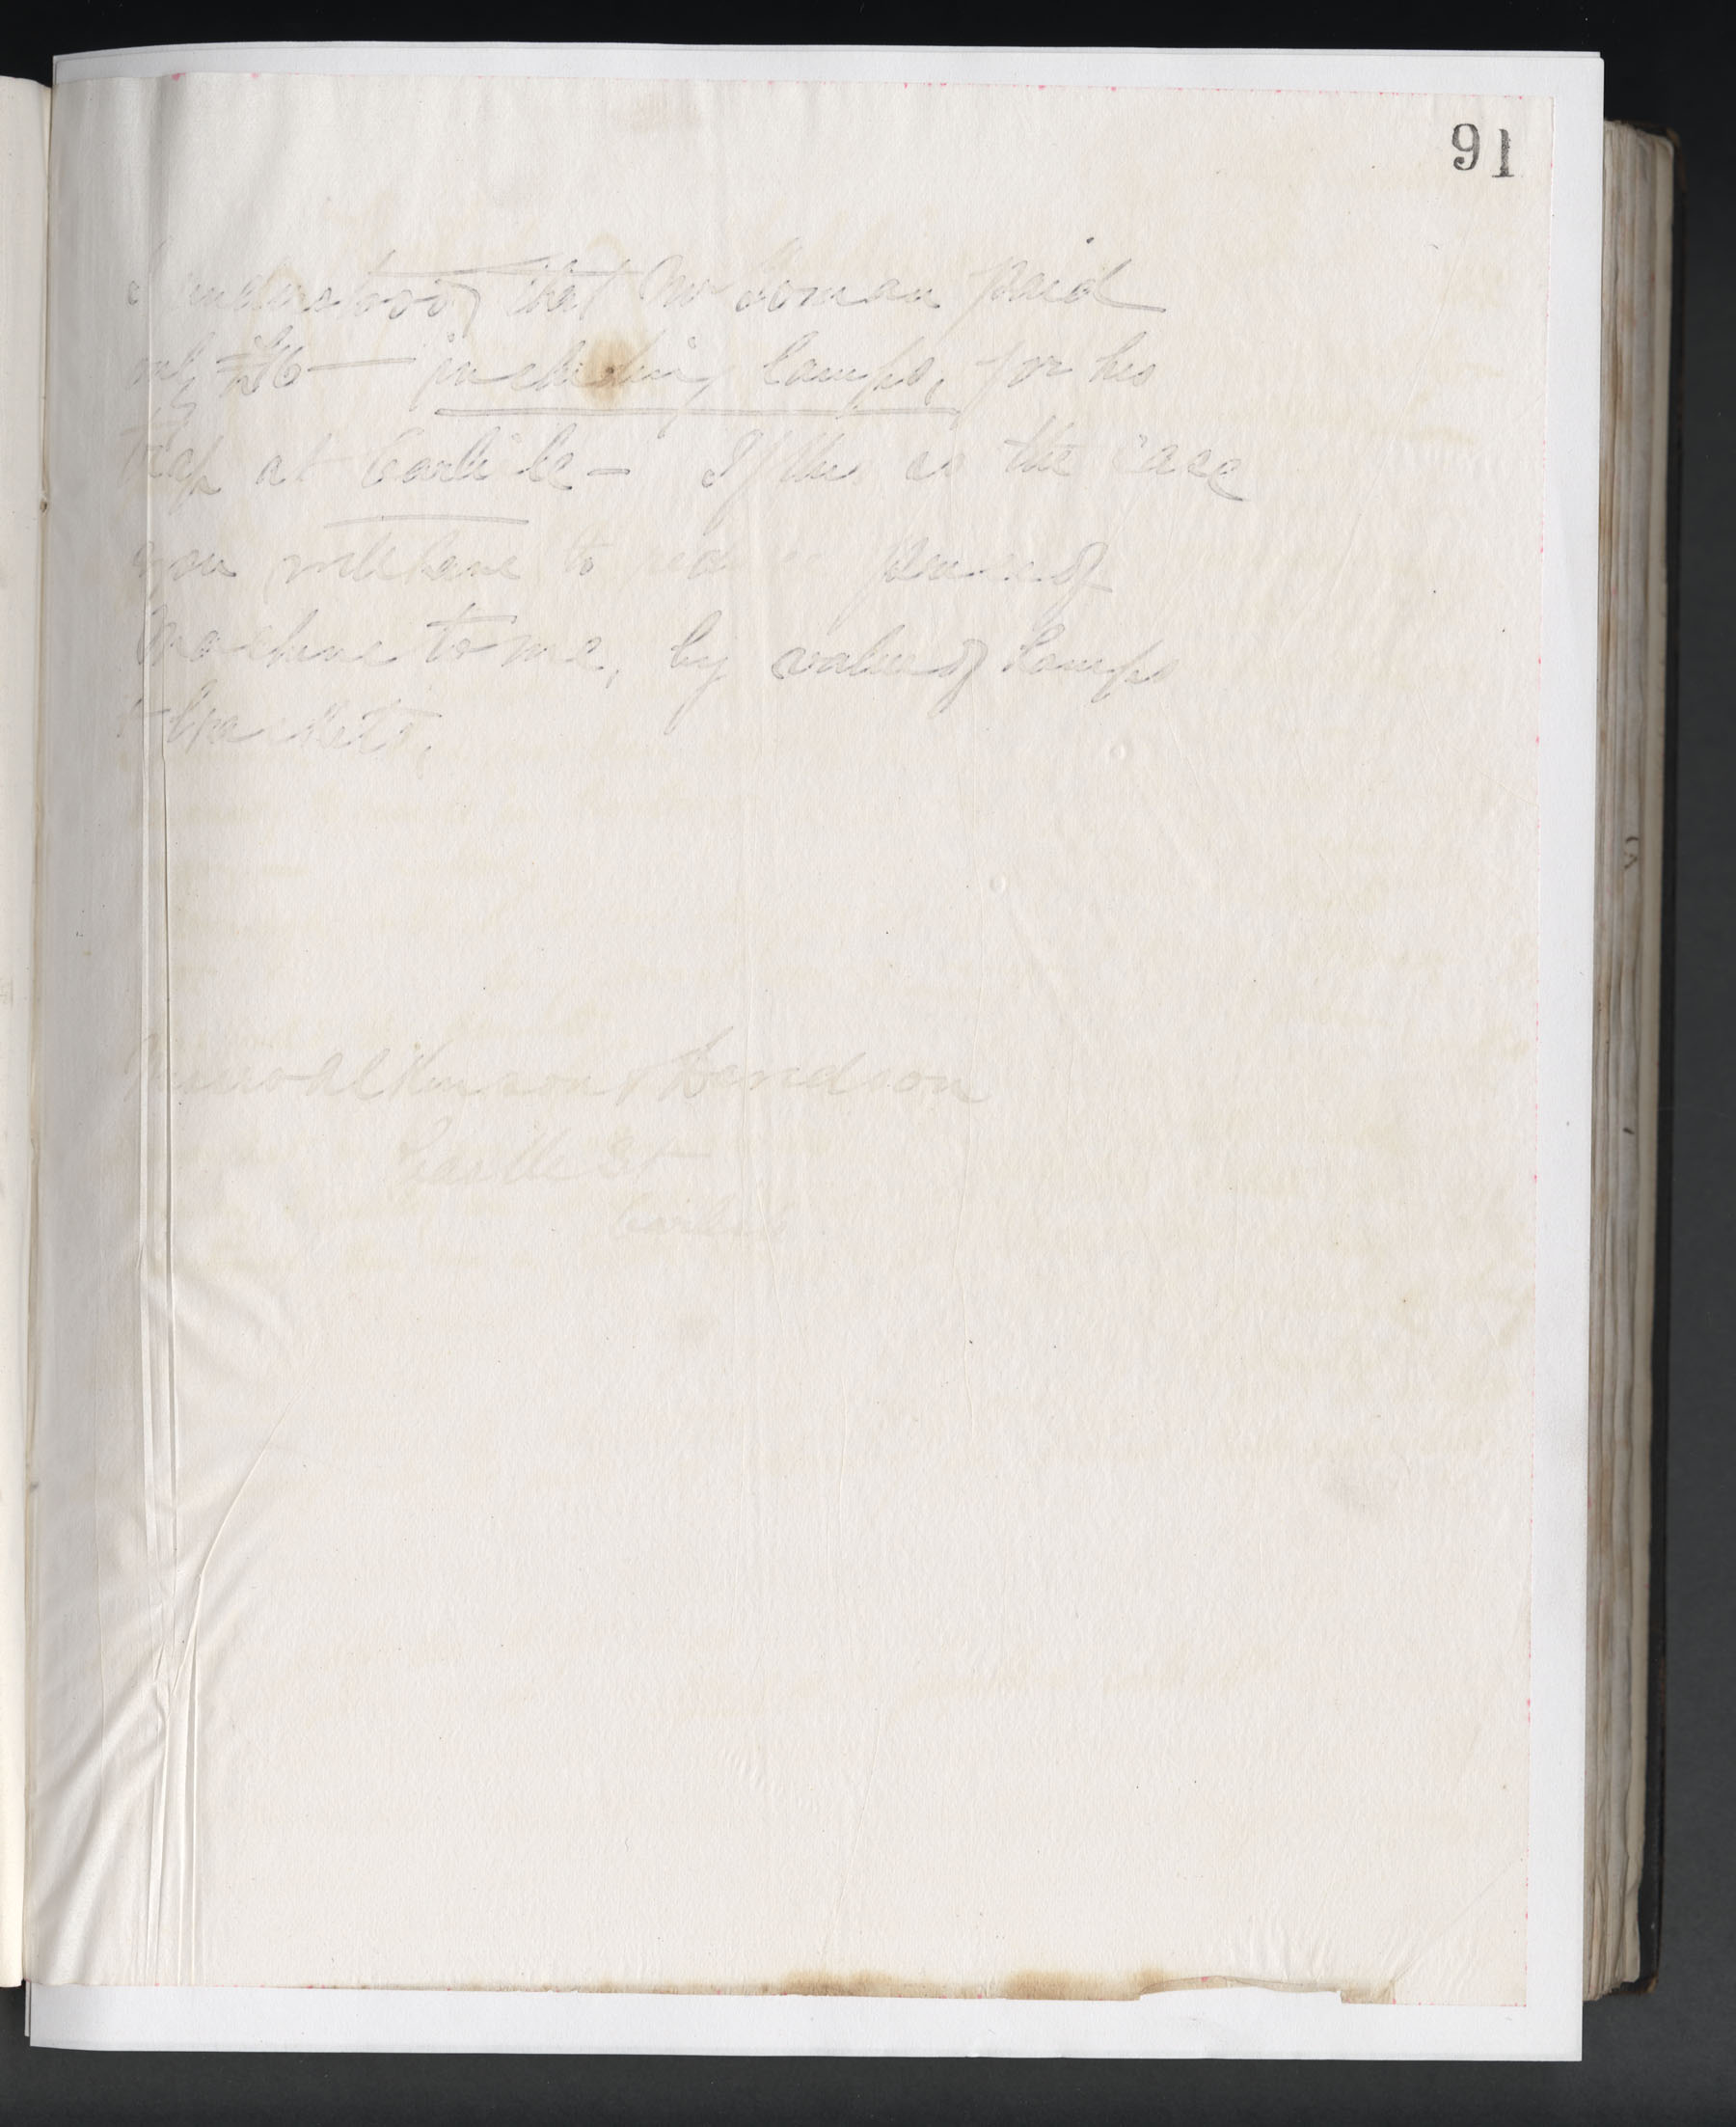 91
I understood that Mr Homan paid
only £26 — including lamps, for his
trap at Carlisle — If this is the case
you will have to reduce price of
Machine to me, by value of Lamps
& Brackets.
Messrs Atkinson & Davidson
Castle St
Carlisle